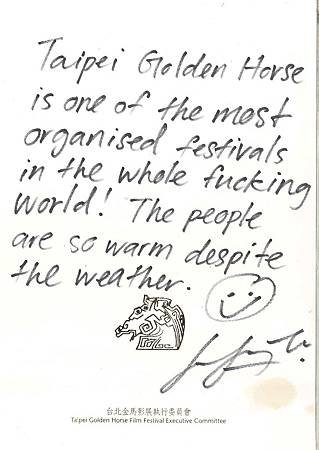 Taipei Golden Horse
is one of the most
organised festivals
in the whole fucking
world! The people
are so warm despite
the weather.
台北金馬影展執行委員會
Taipei Golden Horse Film Festival Executive Committee